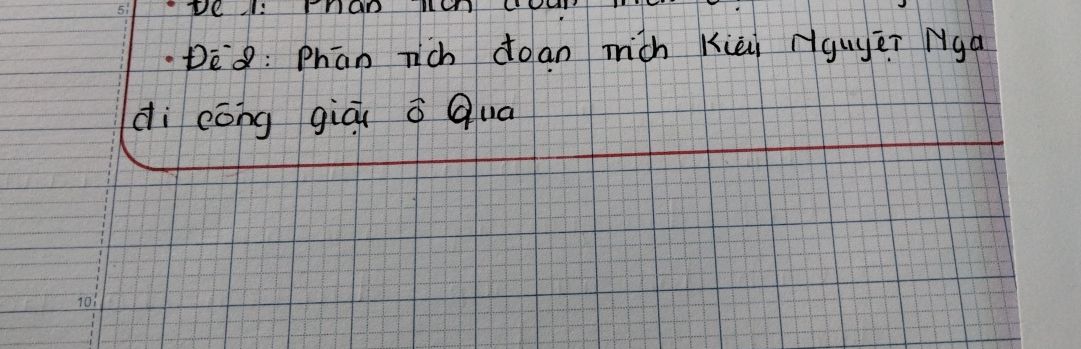 5
• Đề 1: Phân tích đoạn trích
• Đề 2: Phân tích đoạn trích Kiều Nguyệt Nga
đi cống giặc ô Qua
10